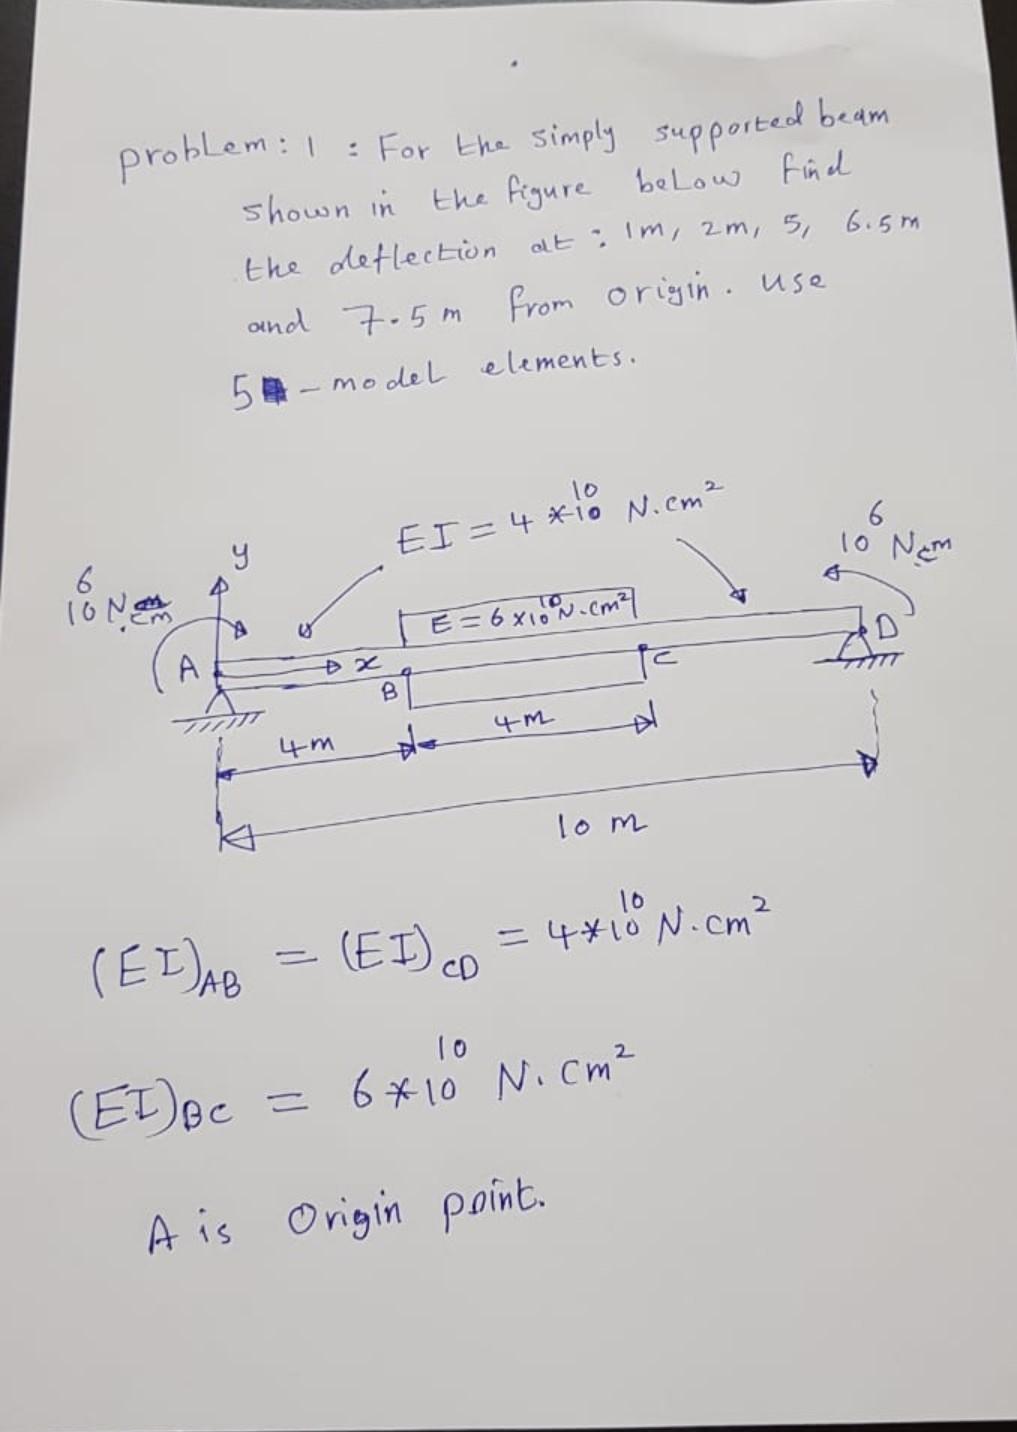 problem: 1 : For the simply supported beam
shown in the figure below find
the deflection at : 1m, 2m, 5, 6.5m
and 7.5m from origin. use
5 - model elements.
EI = 4 *10^10 N.cm^2
10^6 N.cm
y
10^6 Ncm
E = 6 x10^10 N.cm^2
A
x
B
C
D
4m
4m
10 m
(EI)AB = (EI)CD = 4*10^10 N.cm^2
(EI)BC = 6*10^10 N.cm^2
A is origin point.